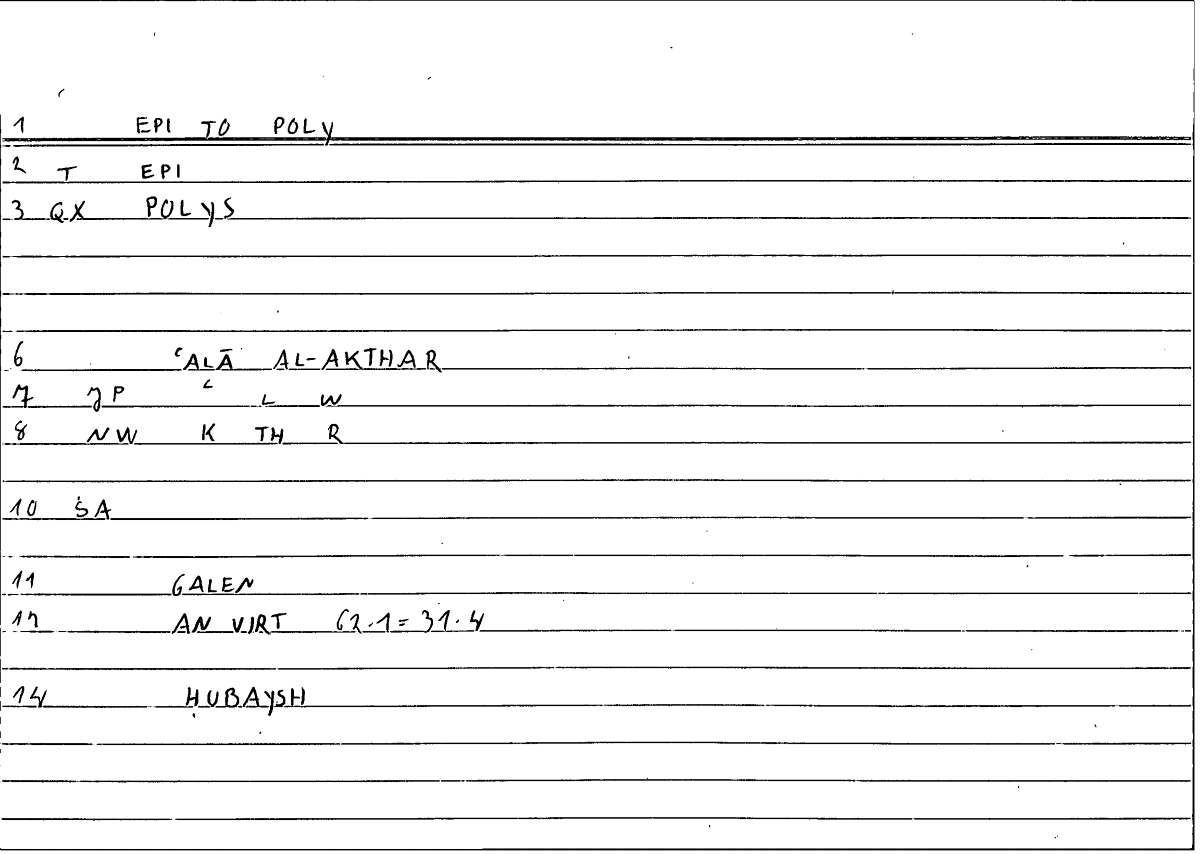 1 EPI TO POLY
2 T EPI
3 QX POLYS
6 ʿALĀ AL-AKTHAR
7 JP ʿ L W
8 NW K TH R
10 ṠA
11 GALEN
12 AN VIRT 62.1=31.4
14 ḤUBAYSH